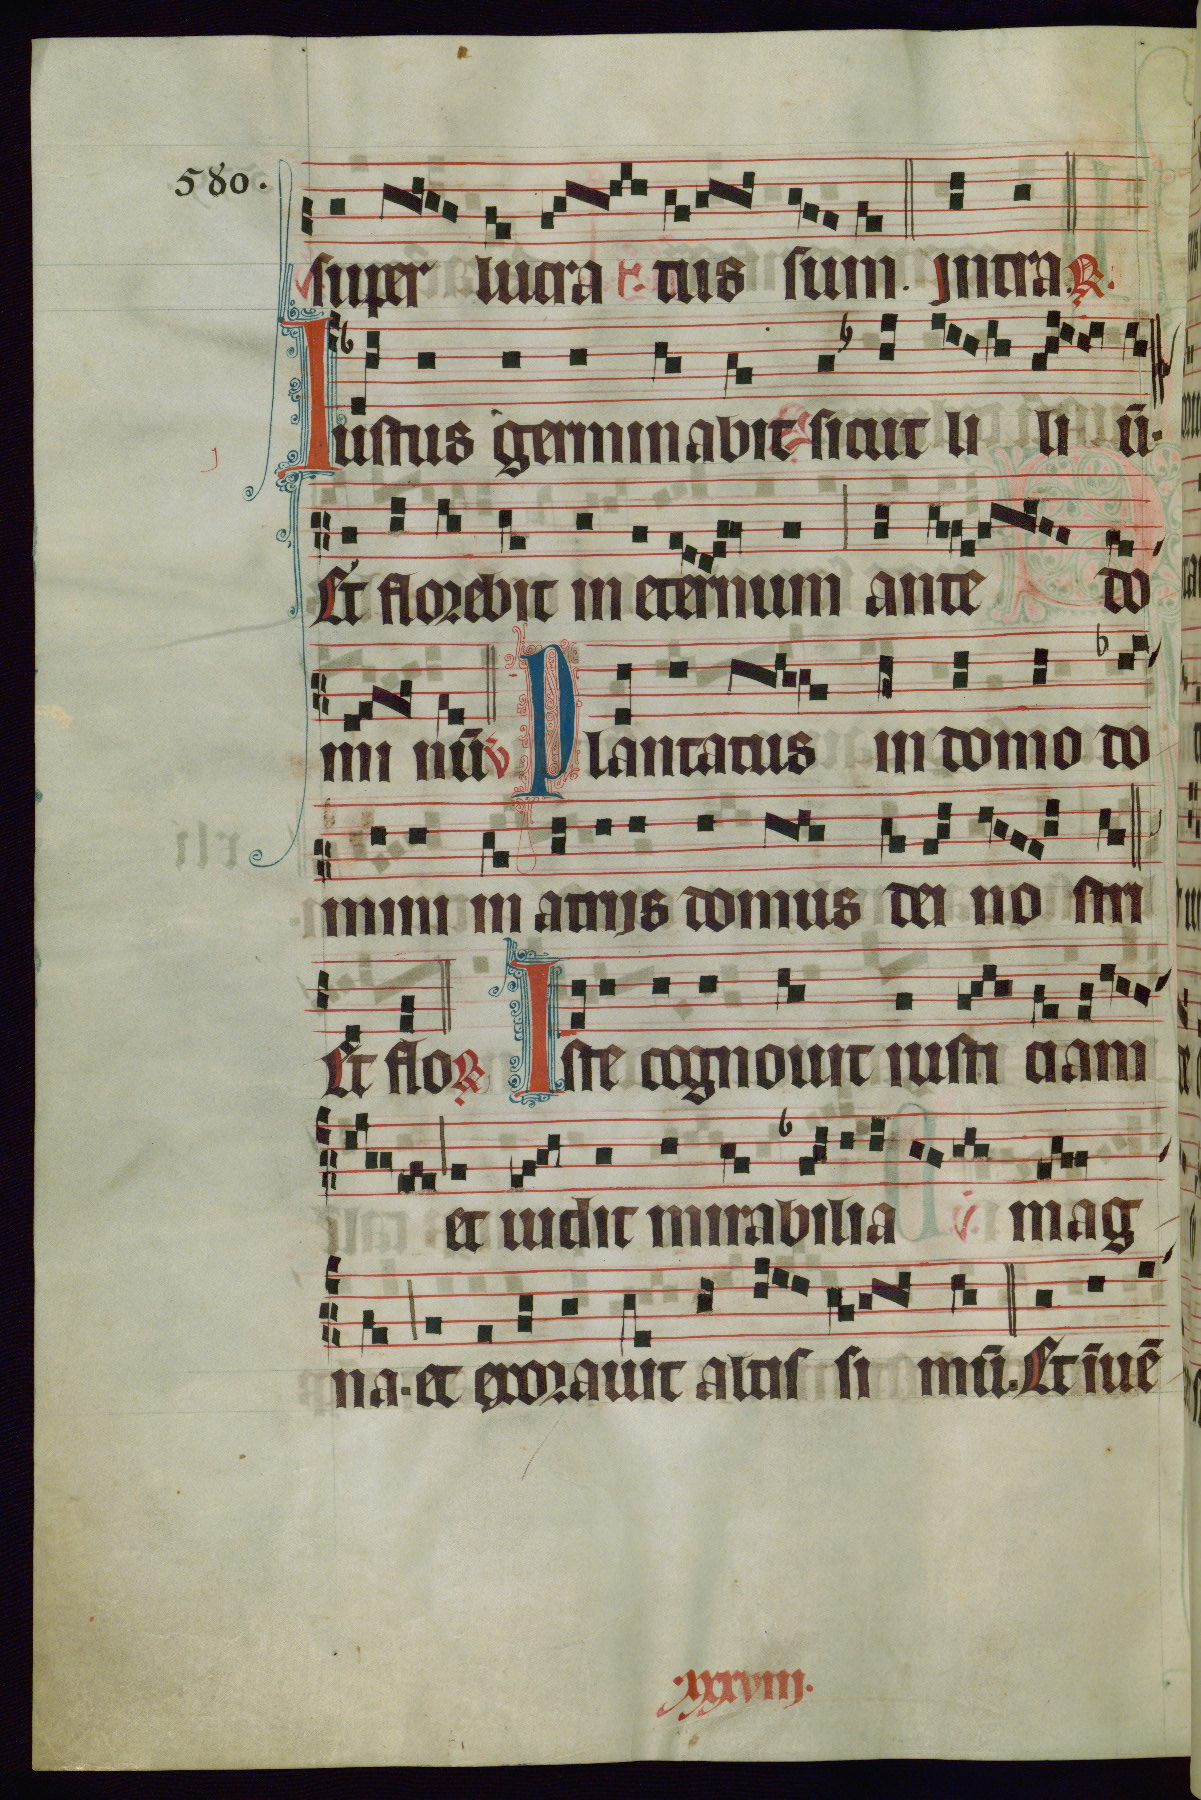 580.
super lucra tus sum. Intra. R.
Iustus germinabit sicut li li ū.
Et florebit in eternum ante do
mi nū v Plantatus in domo do
mini in atrijs domus dei no stri
Et flo R Iste cognouit iusti ciam
et uidit mirabilia mag
na. et exorauit altis si mū. Et īuē
.xxxviiij.